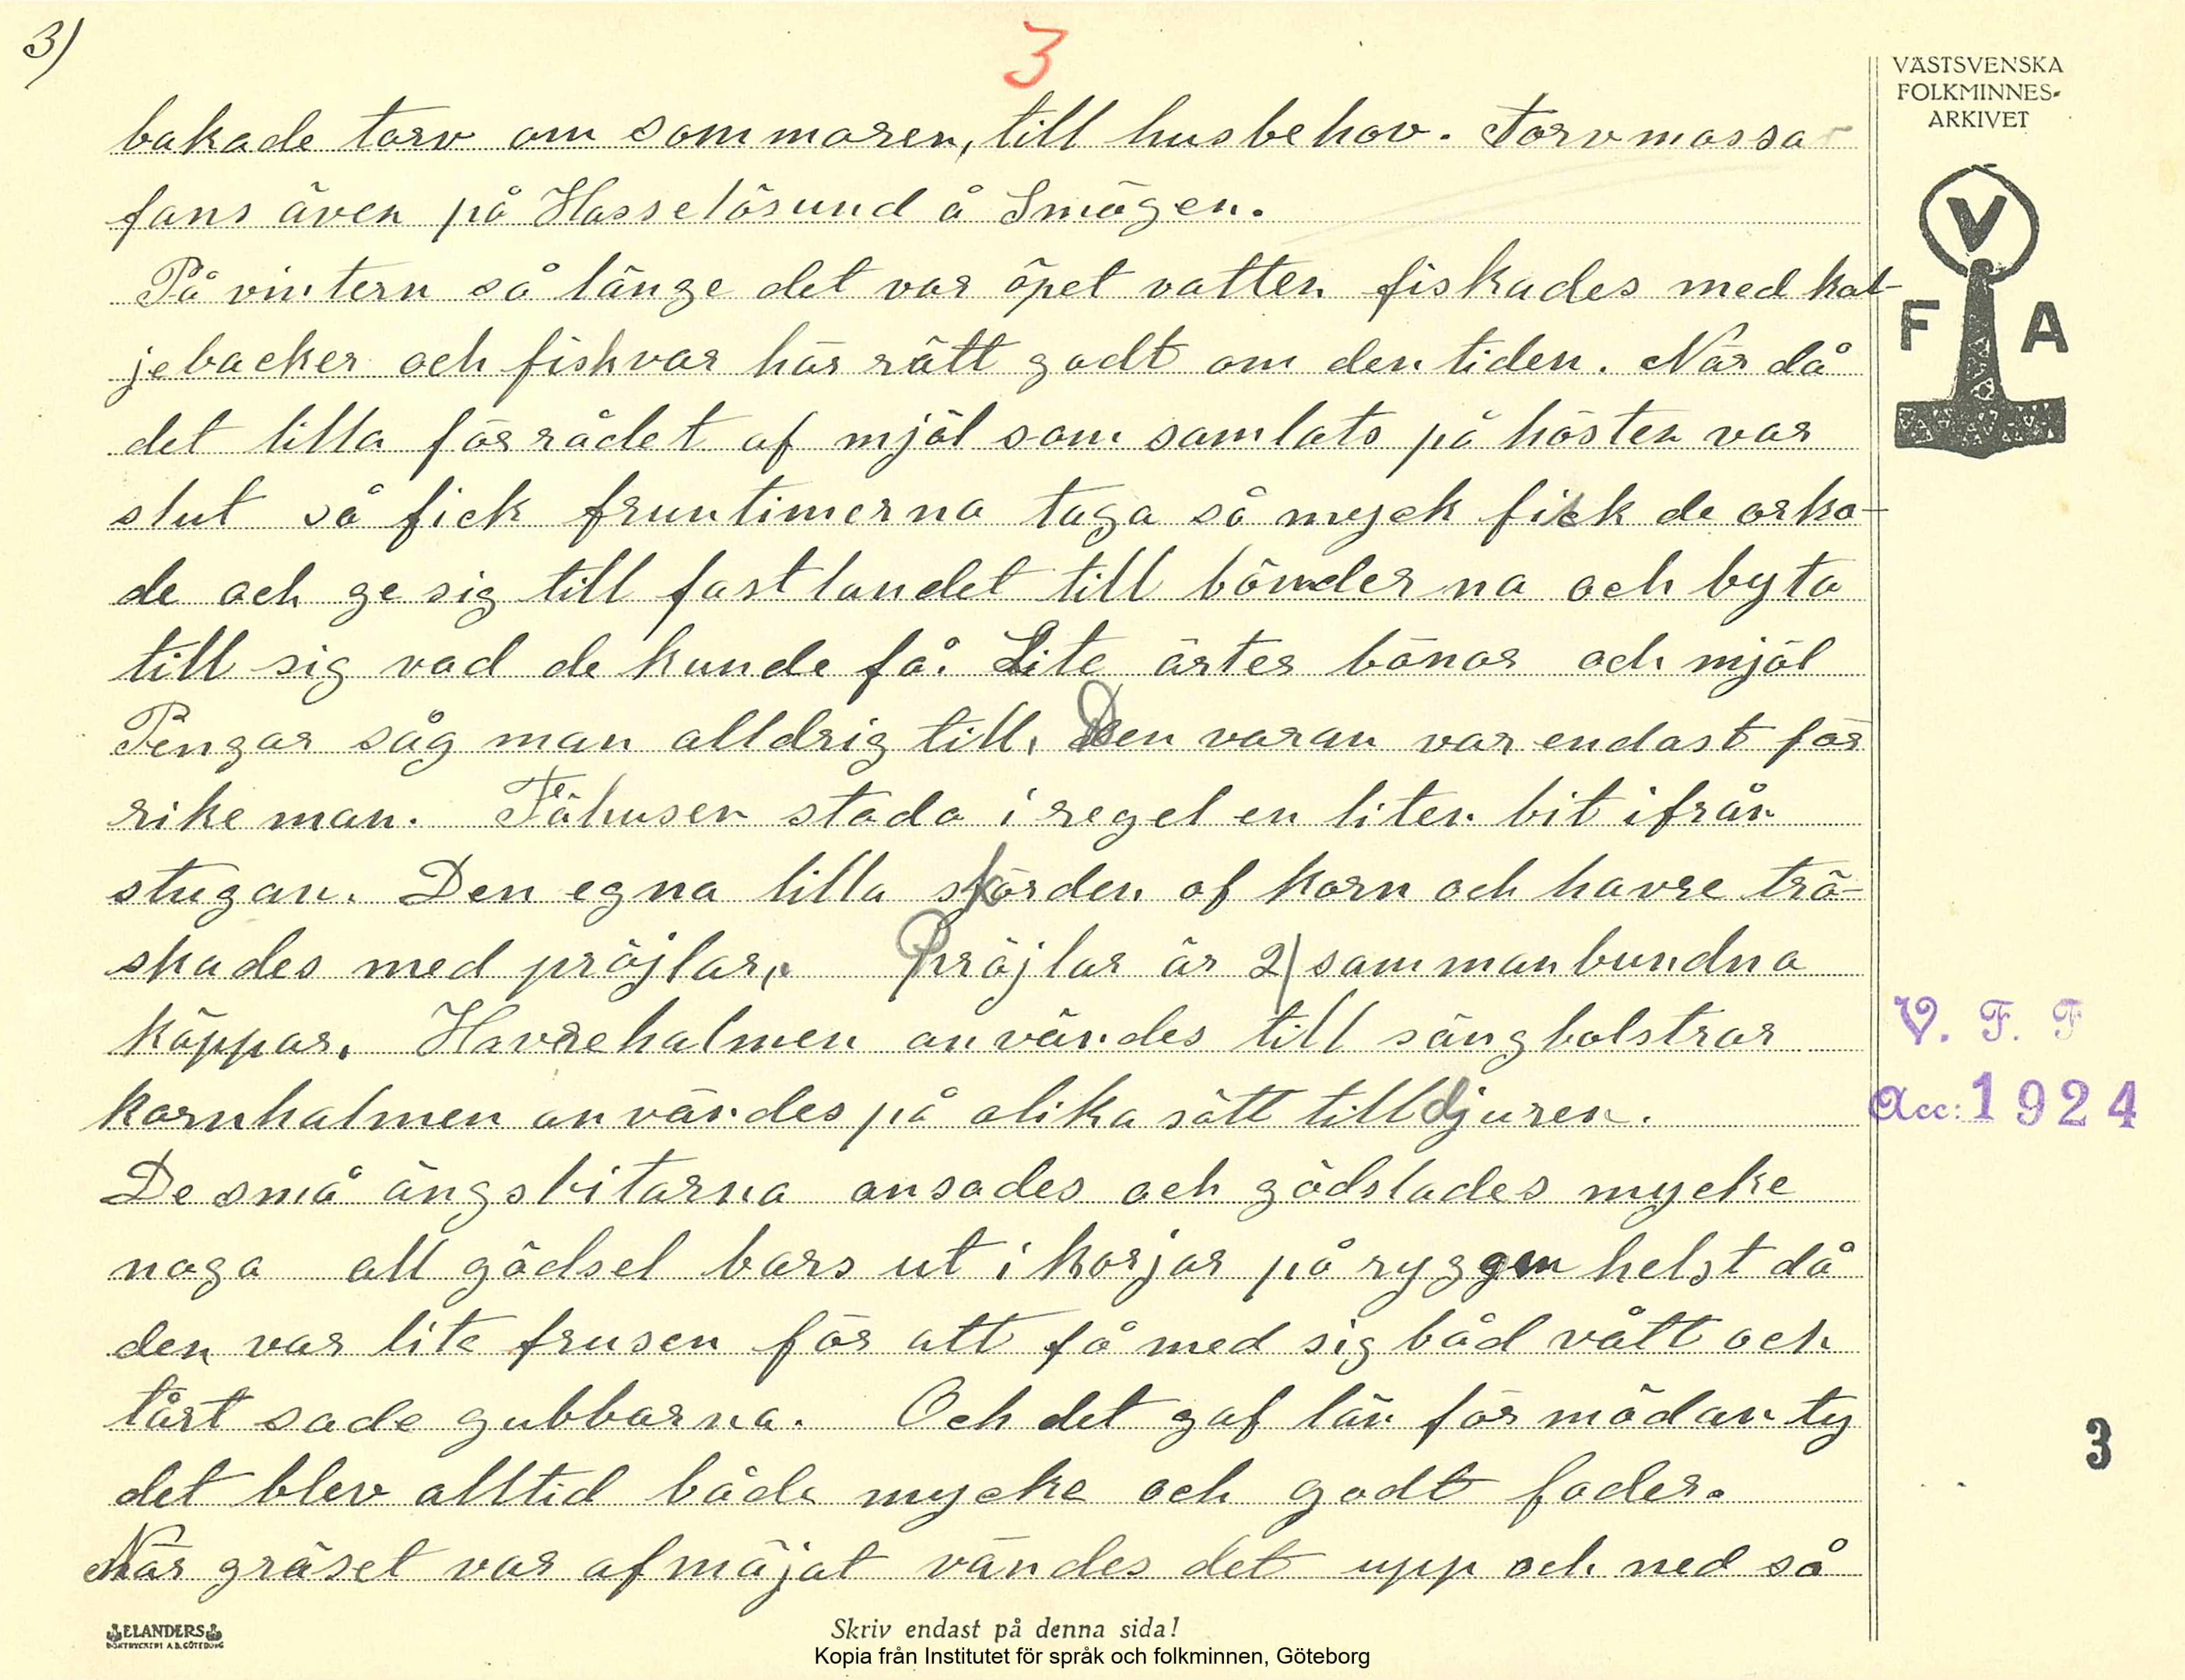 3)
3
VÄSTSVENSKA
FOLKMINNES-
ARKIVET
V
F A
bakade torv om sommaren, till husbehov. Torvmossa
fans även på Hasselösund å Smögen.
På vintern så länge det var öpet vatten fiskades med kol-
jebacker och fisk var här rätt godt om den tiden. När då
det lilla förrådet af mjöl som samlats på hösten var
slut så fick fruntimerna taga så myck fisk de orka-
de och ge sig till fastlandet till bönderna och byta
till sig vad de kunde få. Lite ärter bönor och mjöl
Pengar såg man alldrig till. Den varan var endast för
rike man. Fähusen stodo i regel en liten bit ifrån
stugan. Den egna lilla skörden af korn och havre trö-
skades med pröjlar. Pröjlar är 2 sammanbundna
käppar. Havrehalmen användes till sängbolstrar
kornhalmen användes på olika sätt till djuren.
De små ängsbitarna ansades och gödslades mycke
noga all gödsel bars ut i korjar på ryggen helst då
den var lite frusen för att få med sig båd vått och
tårt sade gubbarna. Och det gaf lön för mödan ty
det blev alltid både mycke och godt foder.
När gräset var afmäjat vändes det upp och ned så
V. F. F
Acc: 1924
3
ELANDERS
BOKTRYCKERI A.B. GÖTEBORG
Skriv endast på denna sida!
Kopia från Institutet för språk och folkminnen, Göteborg